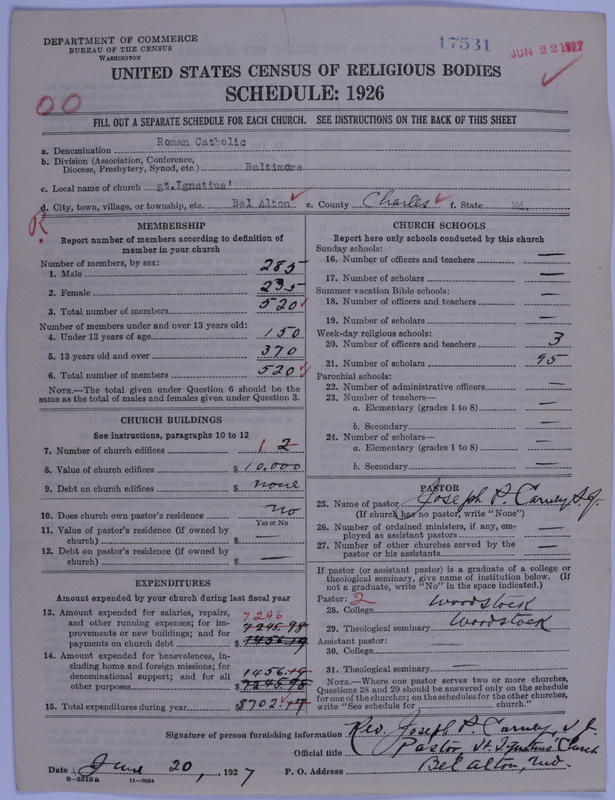 DEPARTMENT OF COMMERCE
BUREAU OF THE CENSUS
WASHINGTON
17531
JUN 22 1927
UNITED STATES CENSUS OF RELIGIOUS BODIES
SCHEDULE: 1926
00
FILL OUT A SEPARATE SCHEDULE FOR EACH CHURCH. SEE INSTRUCTIONS ON THE BACK OF THIS SHEET
a. Denomination Roman Catholic
b. Division (Association, Conference,
Diocese, Presbytery, Synod, etc.) Baltimore
c. Local name of church st.Ignatius'
d. City, town, village, or township, etc. Bel Alton e. County Charles f. State Md.
R.
MEMBERSHIP
Report number of members according to definition of
member in your church
Number of members, by sex:
1. Male 285
2. Female 235
3. Total number of members 520
Number of members under and over 13 years old:
4. Under 13 years of age 150
5. 13 years old and over 370
6. Total number of members 520
NOTE.—The total given under Question 6 should be
same as the total of males and females given under Question 3.
CHURCH BUILDINGS
See instructions, paragraphs 10 to 12
7. Number of church edifices 1 2
8. Value of church edifices $10,000
9. Debt on church edifices $ none
10. Does church own pastor's residence no
Yes or No
11. Value of pastor's residence (if owned by
church) $ —
12. Debt on pastor's residence (if owned by
church) $ —
EXPENDITURES
Amount expended by your church during last fiscal year
13. Amount expended for salaries, repairs,
and other running expenses; for im-
provements or new buildings; and for
payments on church debt $ 7246 7245.98 1456.19
14. Amount expended for benevolences, in-
cluding home and foreign missions; for
denominational support; and for all
other purposes $ 1456.19 7245.98
15. Total expenditures during year $8702.17
CHURCH SCHOOLS
Report here only schools conducted by this church
Sunday schools:
16. Number of officers and teachers —
17. Number of scholars —
Summer vacation Bible schools:
18. Number of officers and teachers —
19. Number of scholars —
Week-day religious schools:
20. Number of officers and teachers 3
21. Number of scholars 95
Parochial schools:
22. Number of administrative officers —
23. Number of teachers—
a. Elementary (grades 1 to 8) —
b. Secondary —
24. Number of scholars—
a. Elementary (grades 1 to 8) —
b. Secondary —
PASTOR
25. Name of pastor Joseph P. Carney S.J.
(If church has no pastor, write "None")
26. Number of ordained ministers, if any, em-
ployed as assistant pastors —
27. Number of other churches served by the
pastor or his assistants —
If pastor (or assistant pastor) is a graduate of a college or
theological seminary, give name of institution below. (If
not a graduate, write "No" in the space indicated.)
Pastor: 2
28. College Woodstock
29. Theological seminary Woodstock
Assistant pastor:
30. College —
31. Theological seminary —
NOTE.—Where one pastor serves two or more churches,
Questions 28 and 29 should be answered only on the schedule
for one of the churches; on the schedules for the other churches,
write "See schedule for church."
Signature of person furnishing information Rev. Joseph P. Carney, S.J.
Official title Pastor, St. Ignatius' Church
Date June 20, 1927 P. O. Address Bel Alton, Md.
8-5518a 11-9034